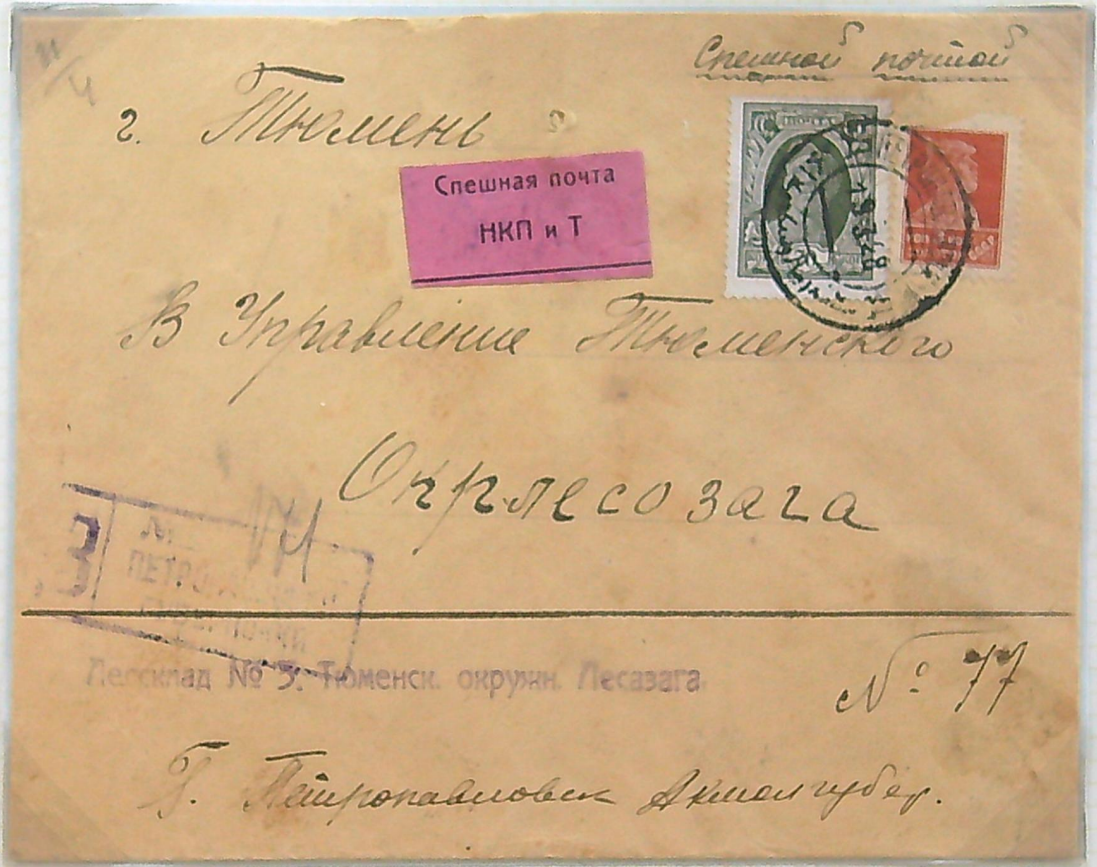 Спешной почтой
г. Тюмень
Спешная почта
НКП и Т
ПОЧТА
В Управление Тюменского
Окрлесозага
З
№ 171
Лессклад № 3. Тюменск. окружн. Лесазага.
№ 77
Г. Петропавловск Акмолгубер.